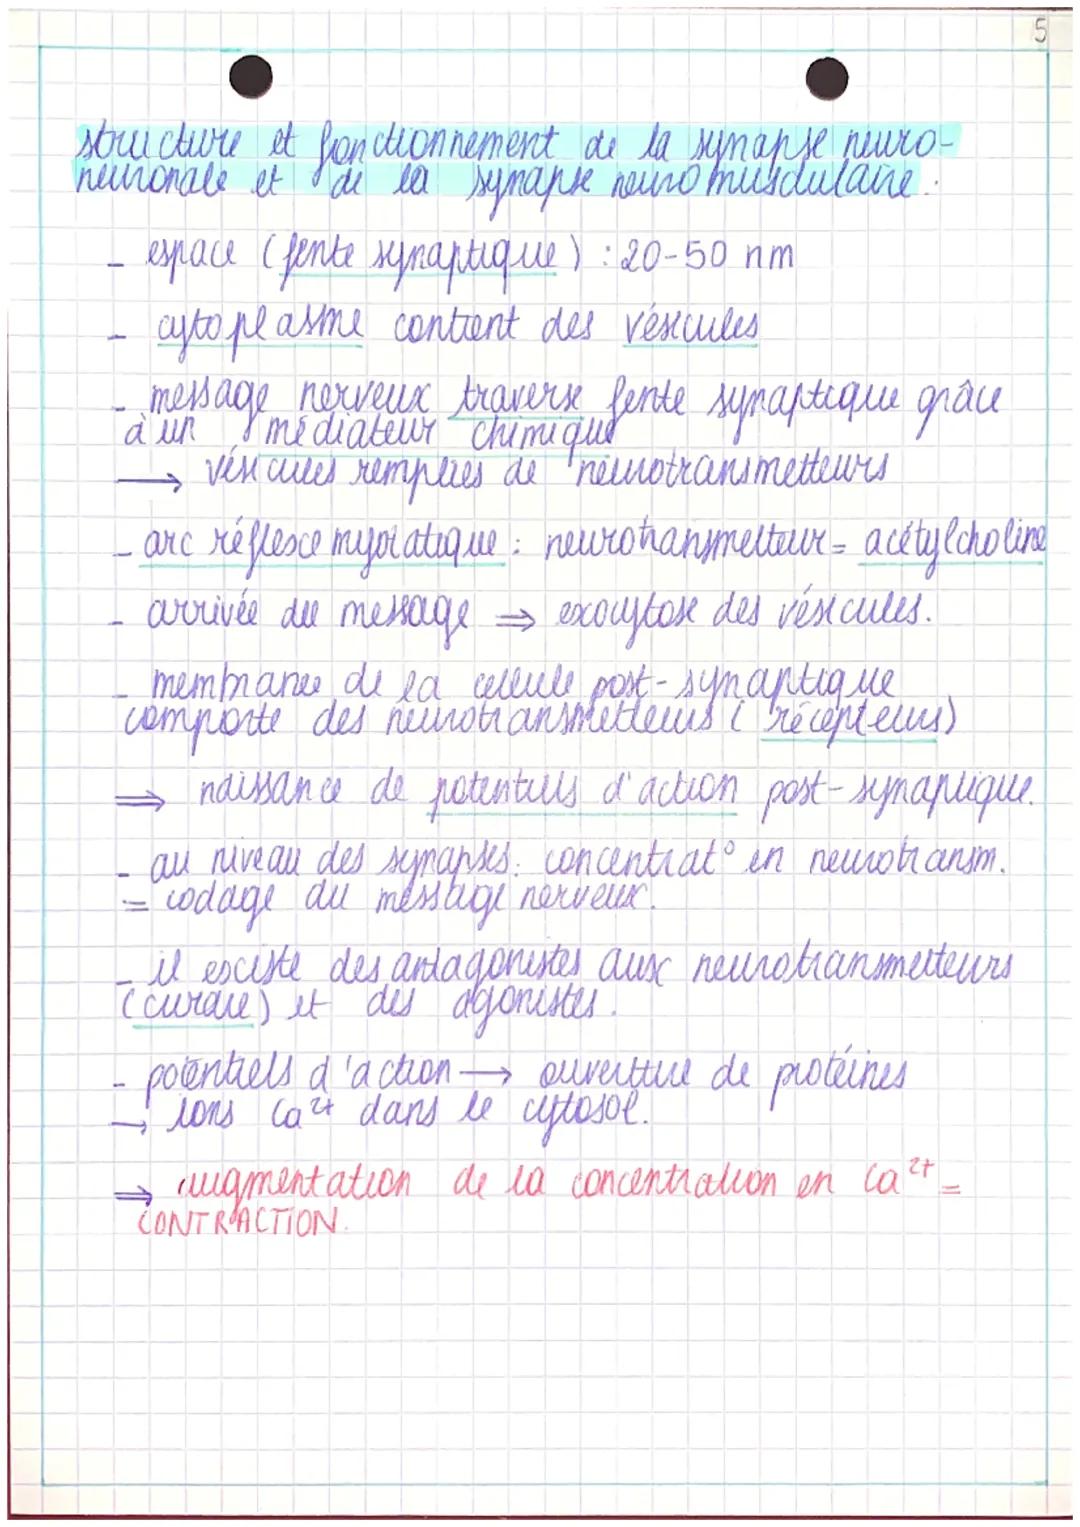 5
structure et fonctionnement de la synapse neuro-
neuronale et de la synapse neuromusculaire :
- espace (fente synaptique) : 20-50 nm
- cytoplasme contient des vésicules
- message nerveux traverse fente synaptique grâce
à un médiateur chimique
→ vésicules remplies de neurotransmetteurs
- arc réflexe myotatique : neurotransmetteur = acétylcholine
- arrivée du message ⇒ exocytose des vésicules.
- membrane de la cellule post-synaptique
comporte des neurotransmetteurs (récepteurs)
⇒ naissance de potentiels d'action post-synaptique.
- au niveau des synapses : concentrat° en neurotransm.
= codage du message nerveux.
- il existe des antagonistes aux neurotransmetteurs
(curare) et des agonistes.
- potentiels d'action → ouverture de protéines
→ ions Ca²⁺ dans le cytosol.
⇒ augmentation de la concentration en Ca²⁺ =
CONTRACTION.